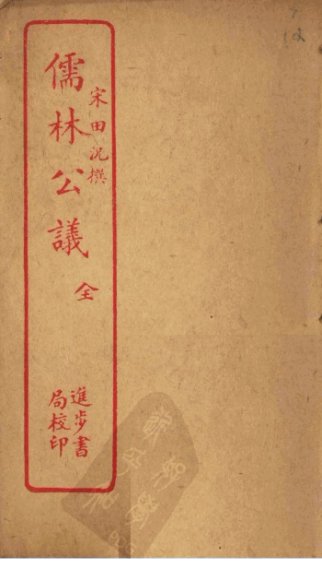 宋田況撰
儒林公議 全
進步書
局校印